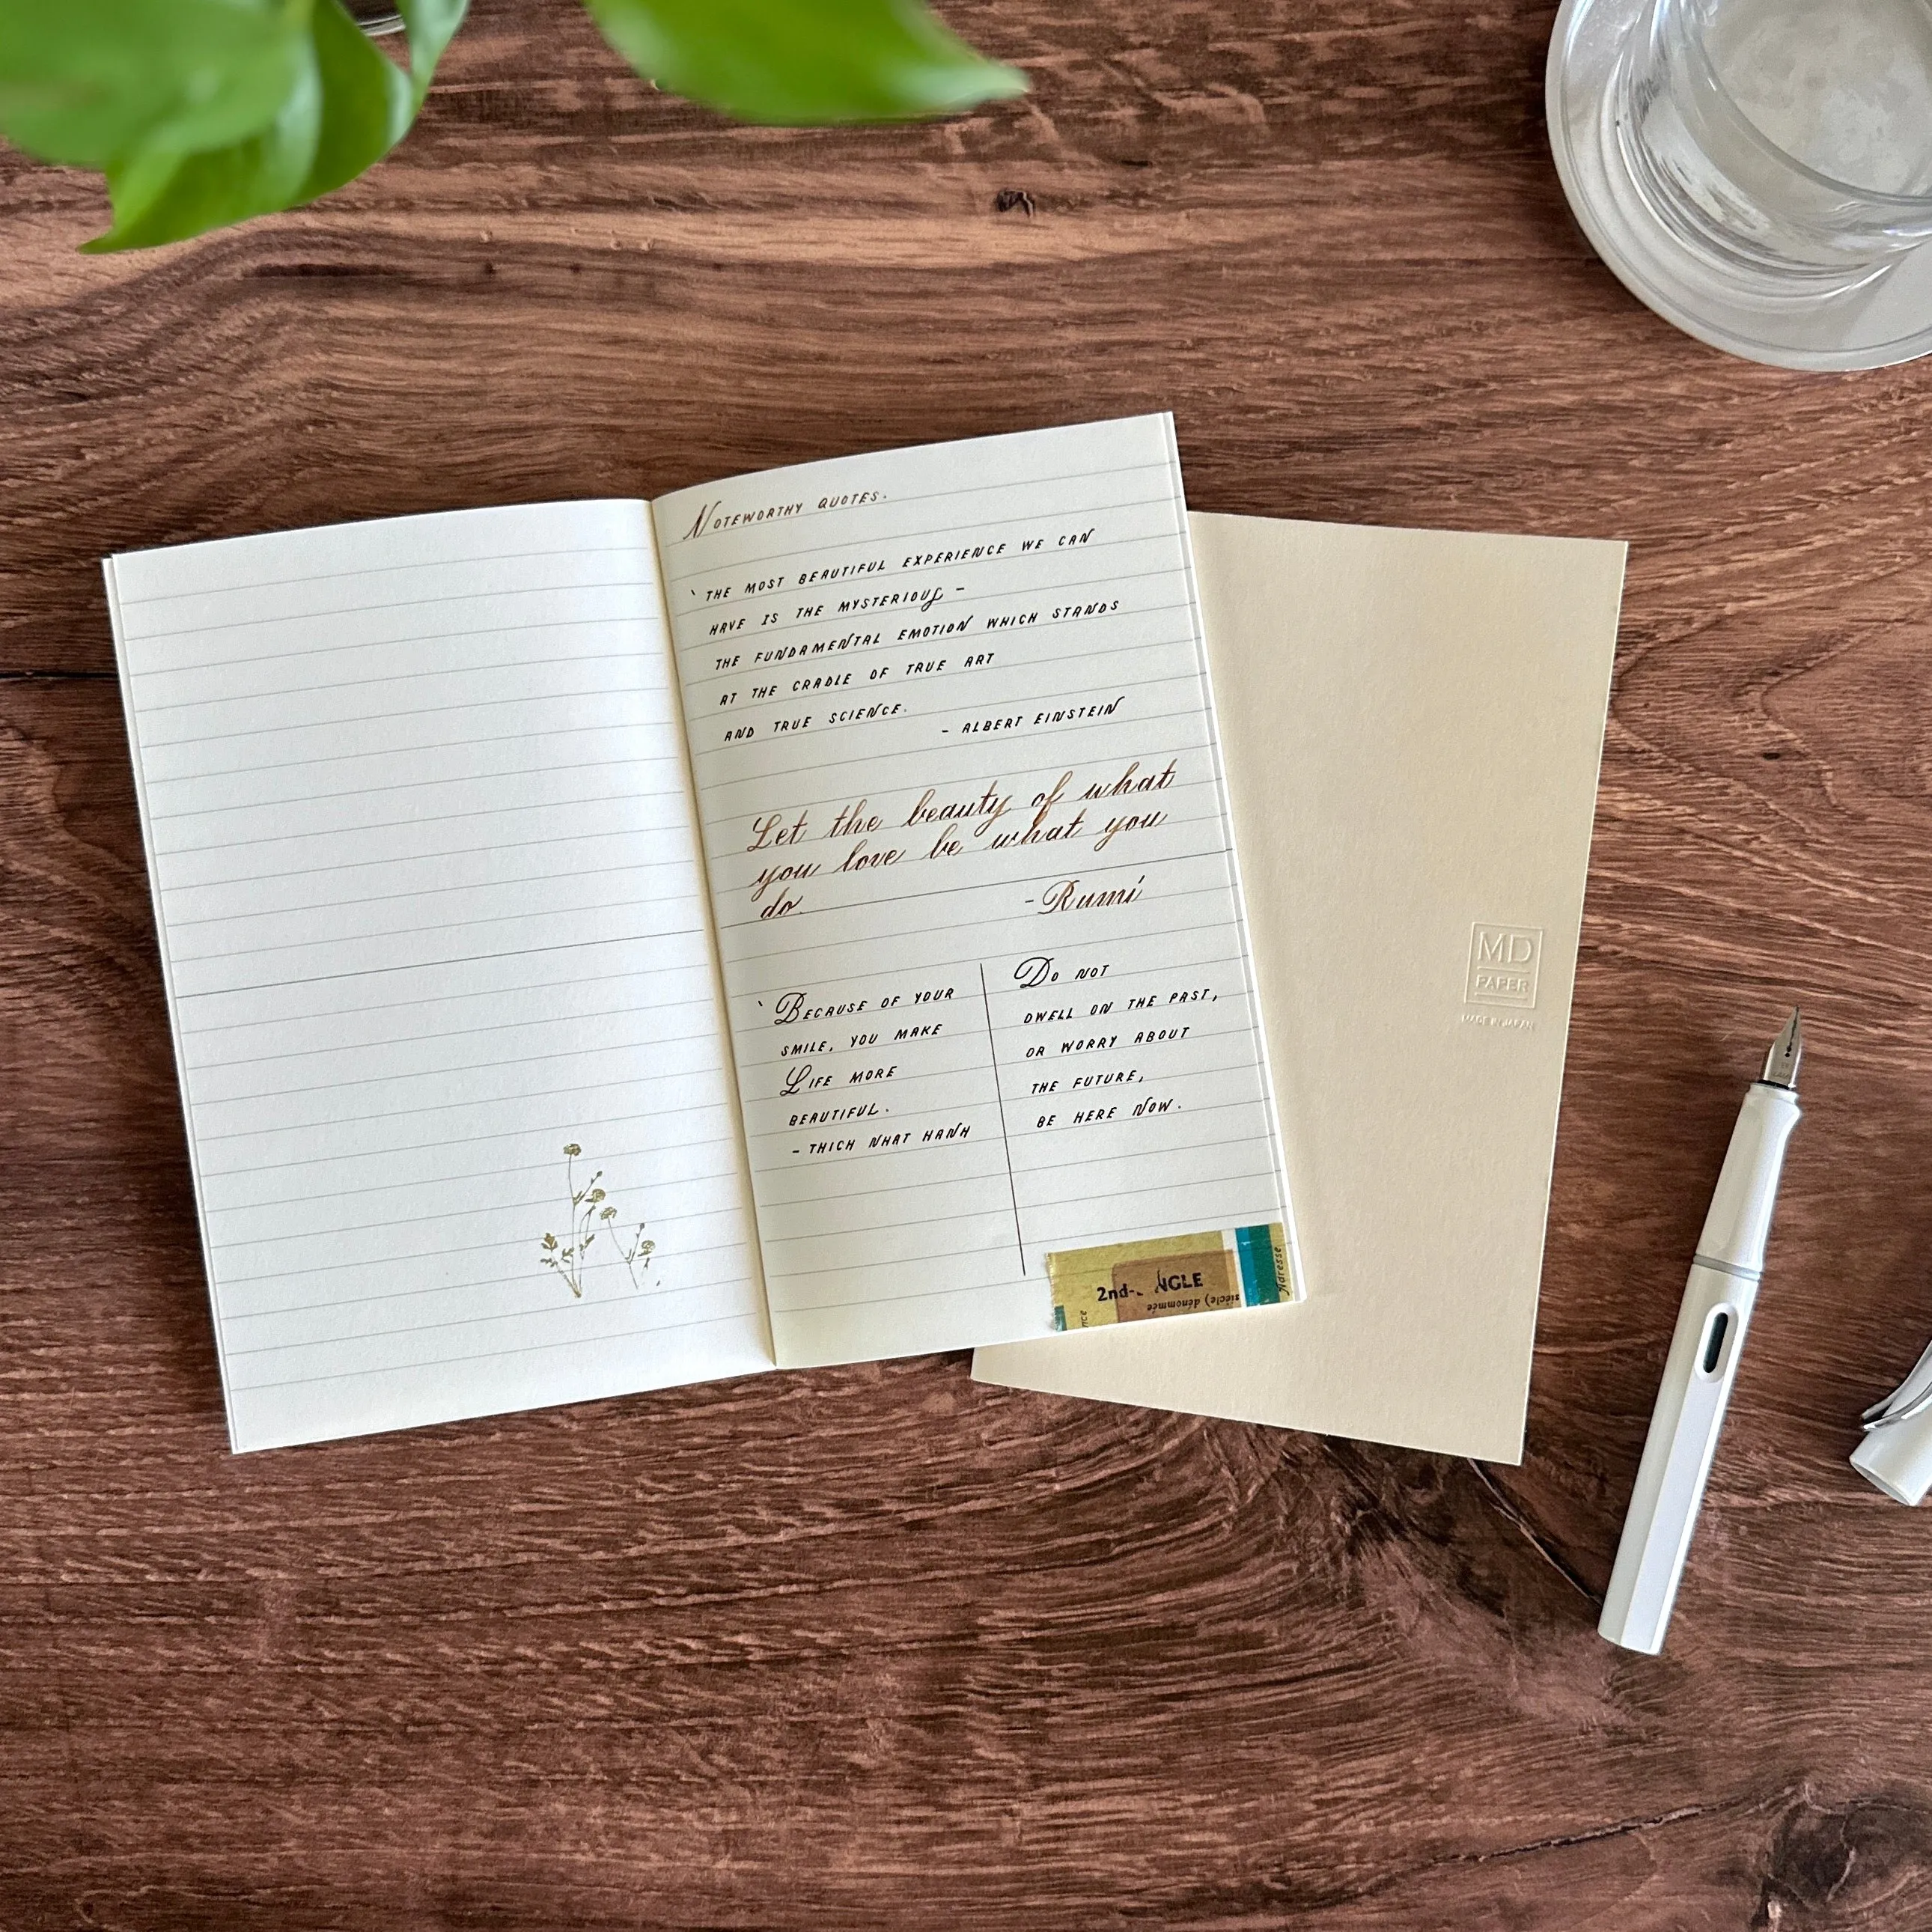 Noteworthy quotes.
'The most beautiful experience we can
have is the mysterious -
the fundamental emotion which stands
at the cradle of true art
and true science.
- Albert Einstein
Let the beauty of what
you love be what you
do.
- Rumi
'Because of your
smile, you make
Life more
beautiful.
- Thich Nhat Hanh
Do not
dwell on the past,
or worry about
the future,
be here now.
2nd- NGLE
siècle) dénommée
Adresse
MD
PAPER
MADE IN JAPAN